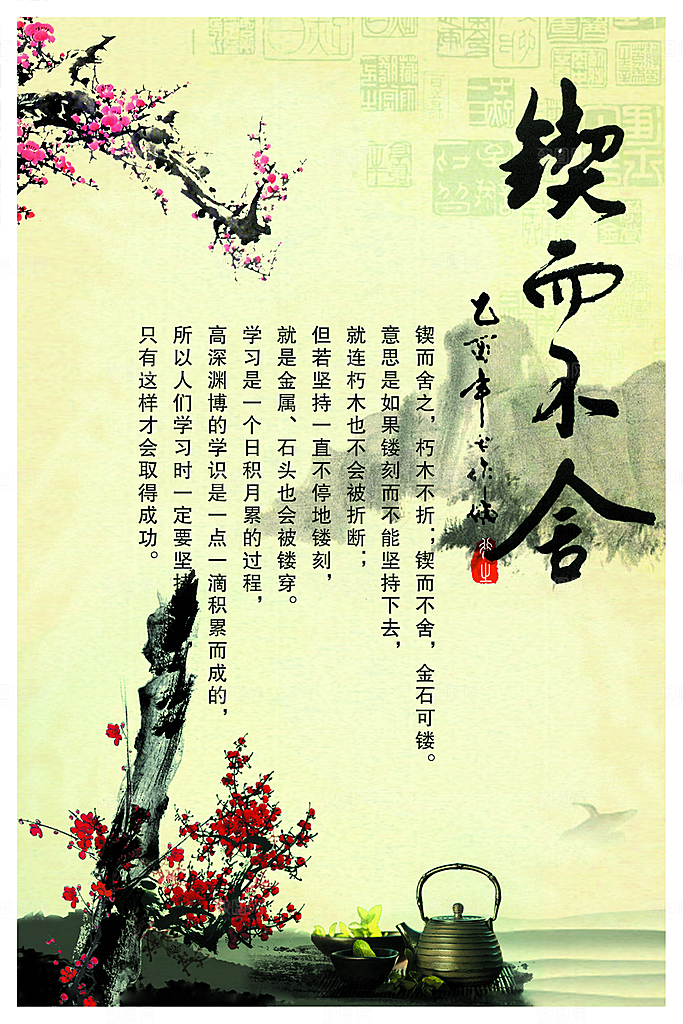 锲而不舍
乙酉年
锲而舍之，朽木不折；锲而不舍，金石可镂。
意思是如果镂刻而不能坚持下去，
就连朽木也不会被折断；
但若坚持一直不停地镂刻，
就是金属、石头也会被镂穿。
学习是一个日积月累的过程，
高深渊博的学识是一点一滴积累而成的，
所以人们学习时一定要坚持
只有这样才会取得成功。